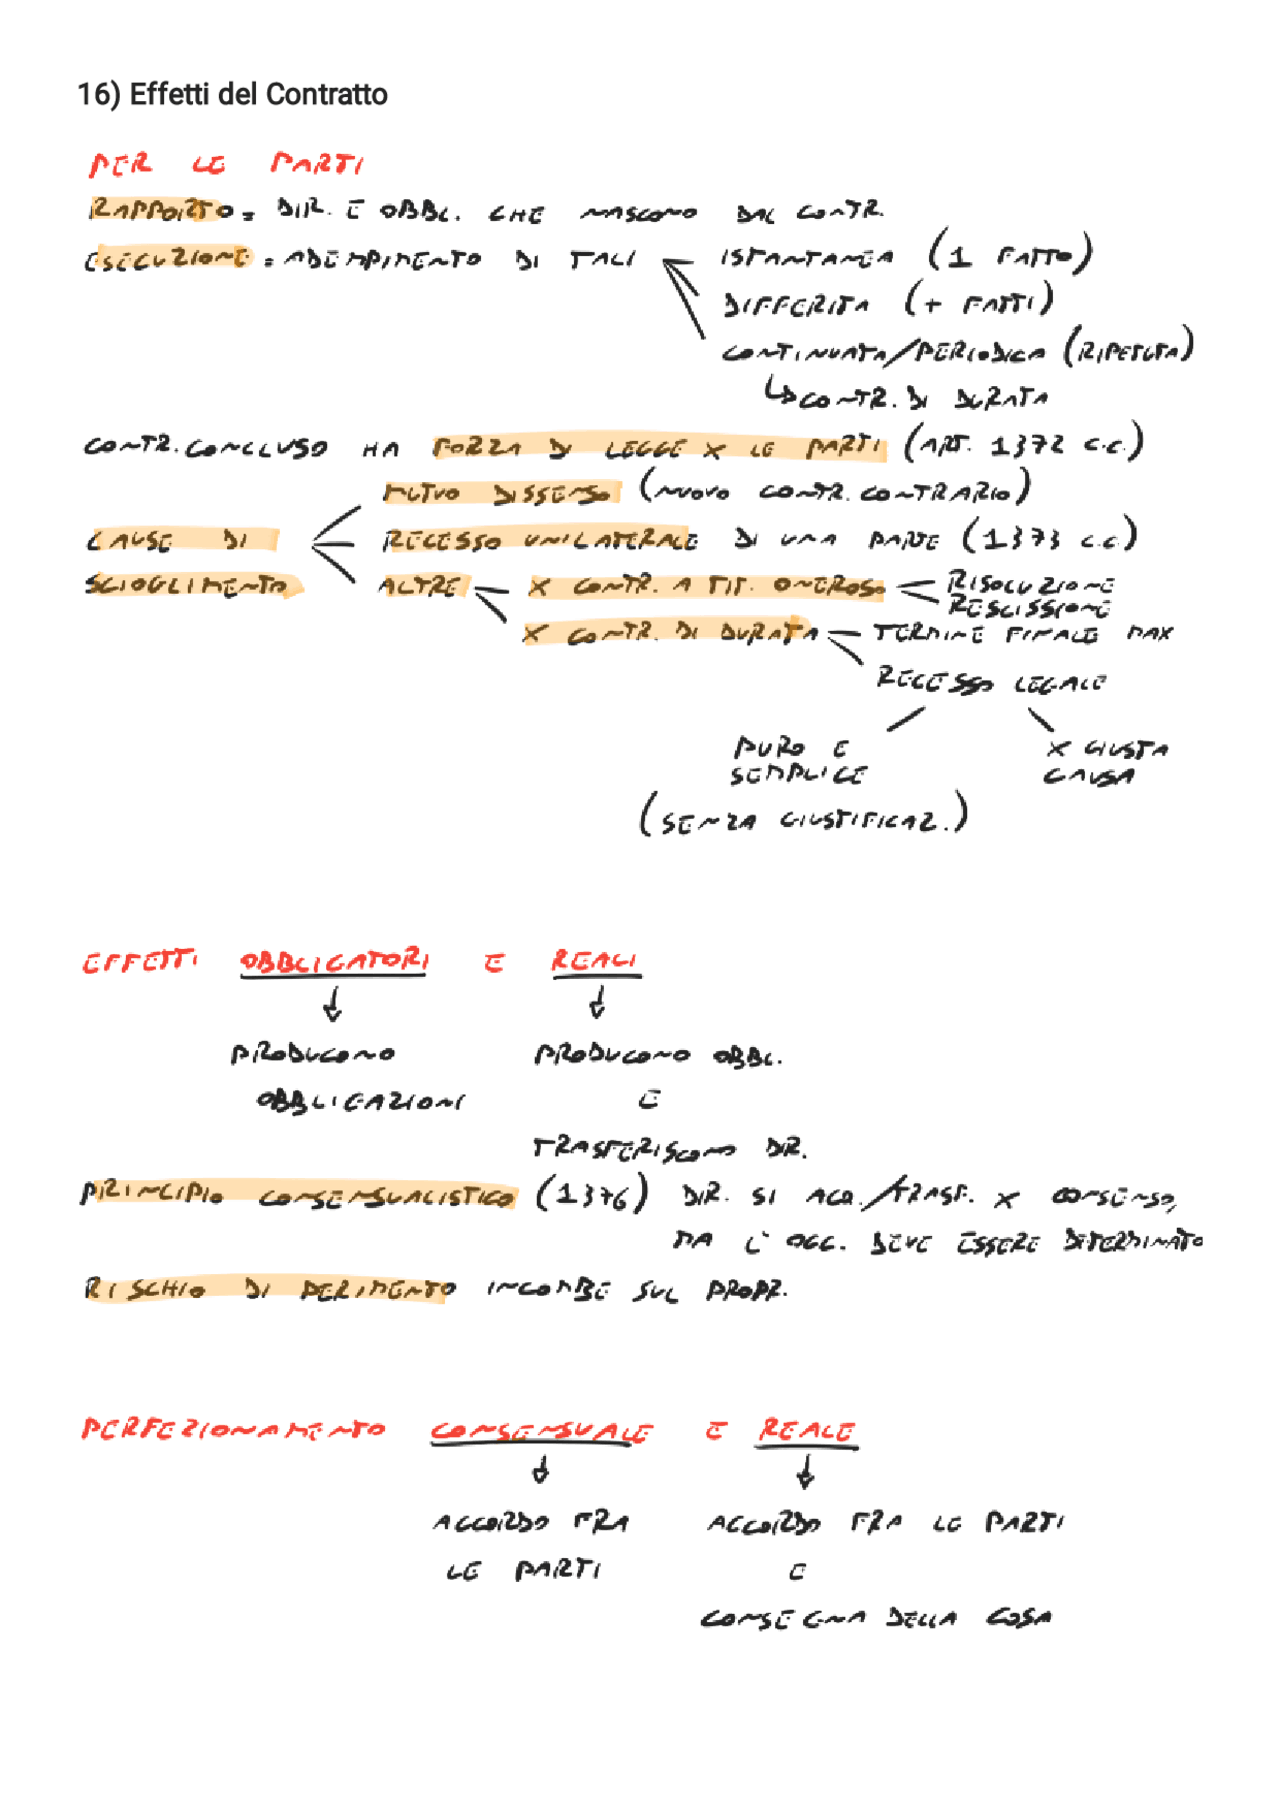 16) Effetti del Contratto
PER LE PARTI
RAPPORTO = DIR. E OBBL. CHE NASCONO DAL CONTR.
ESECUZIONE = ADEMPIMENTO DI TALI ISTANTANEA (1 FATTO)
DIFFERITA (+ FATTI)
CONTINUATA/PERIODICA (RIPETUTA)
↳ CONTR. DI DURATA
CONTR. CONCLUSO HA FORZA DI LEGGE X LE PARTI (ART. 1372 C.C.)
MUTUO DISSENSO (NUOVO CONTR. CONTRARIO)
CAUSE DI RECESSO UNILATERALE DI UNA PARTE (1373 C.C.)
SCIOGLIMENTO ALTRE X CONTR. A TIT. ONEROSO RISOLUZIONE
RESCISSIONE
X CONTR. DI DURATA TERMINE FINALE MAX
RECESSO LEGALE
PURO E X GIUSTA
SEMPLICE CAUSA
(SENZA GIUSTIFICAZ.)
EFFETTI OBBLIGATORI E REALI
PRODUCONO PRODUCONO OBBL.
OBBLIGAZIONI E
TRASFERISCONO DIR.
PRINCIPIO CONSENSUALISTICO (1376) DIR. SI ACQ./TRASF. X CONSENSO,
MA L'OGG. DEVE ESSERE DETERMINATO
RISCHIO DI PERIMENTO INCOMBE SUL PROPR.
PERFEZIONAMENTO CONSENSUALE E REALE
ACCORDO FRA ACCORDO FRA LE PARTI
LE PARTI E
CONSEGNA DELLA COSA